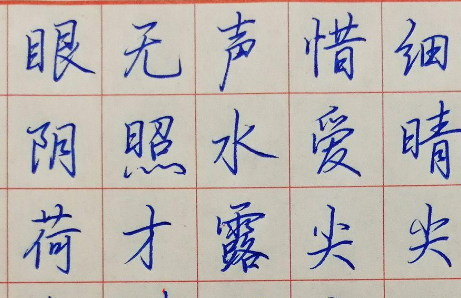 眼无声惜细
阴照水爱晴
荷才露尖尖